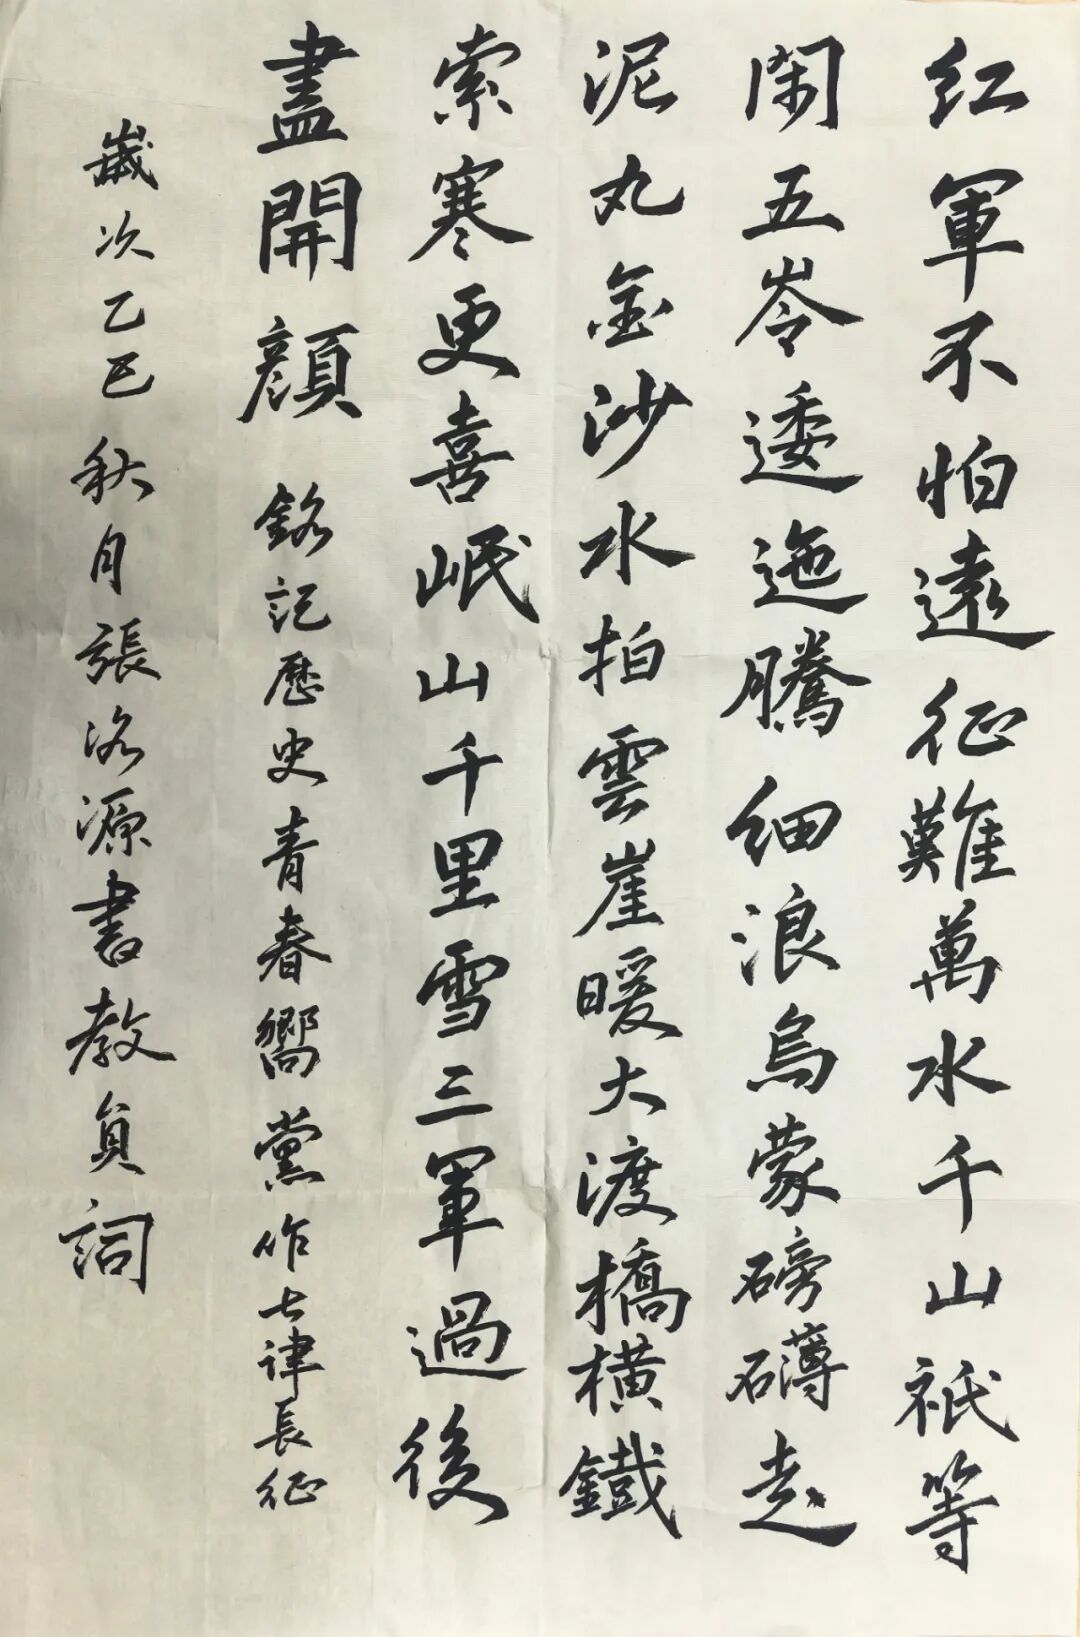 红軍不怕遠征難萬水千山祇等
閑五岺逶迤騰細浪烏蒙磅礴走
泥丸金沙水拍雲崖暖大渡橋橫鐵
索寒更喜岷山千里雪三軍過後
盡開顔 銘記歷史青春嚮黨作七律長征
歲次乙巳秋月張洛源書教員詞